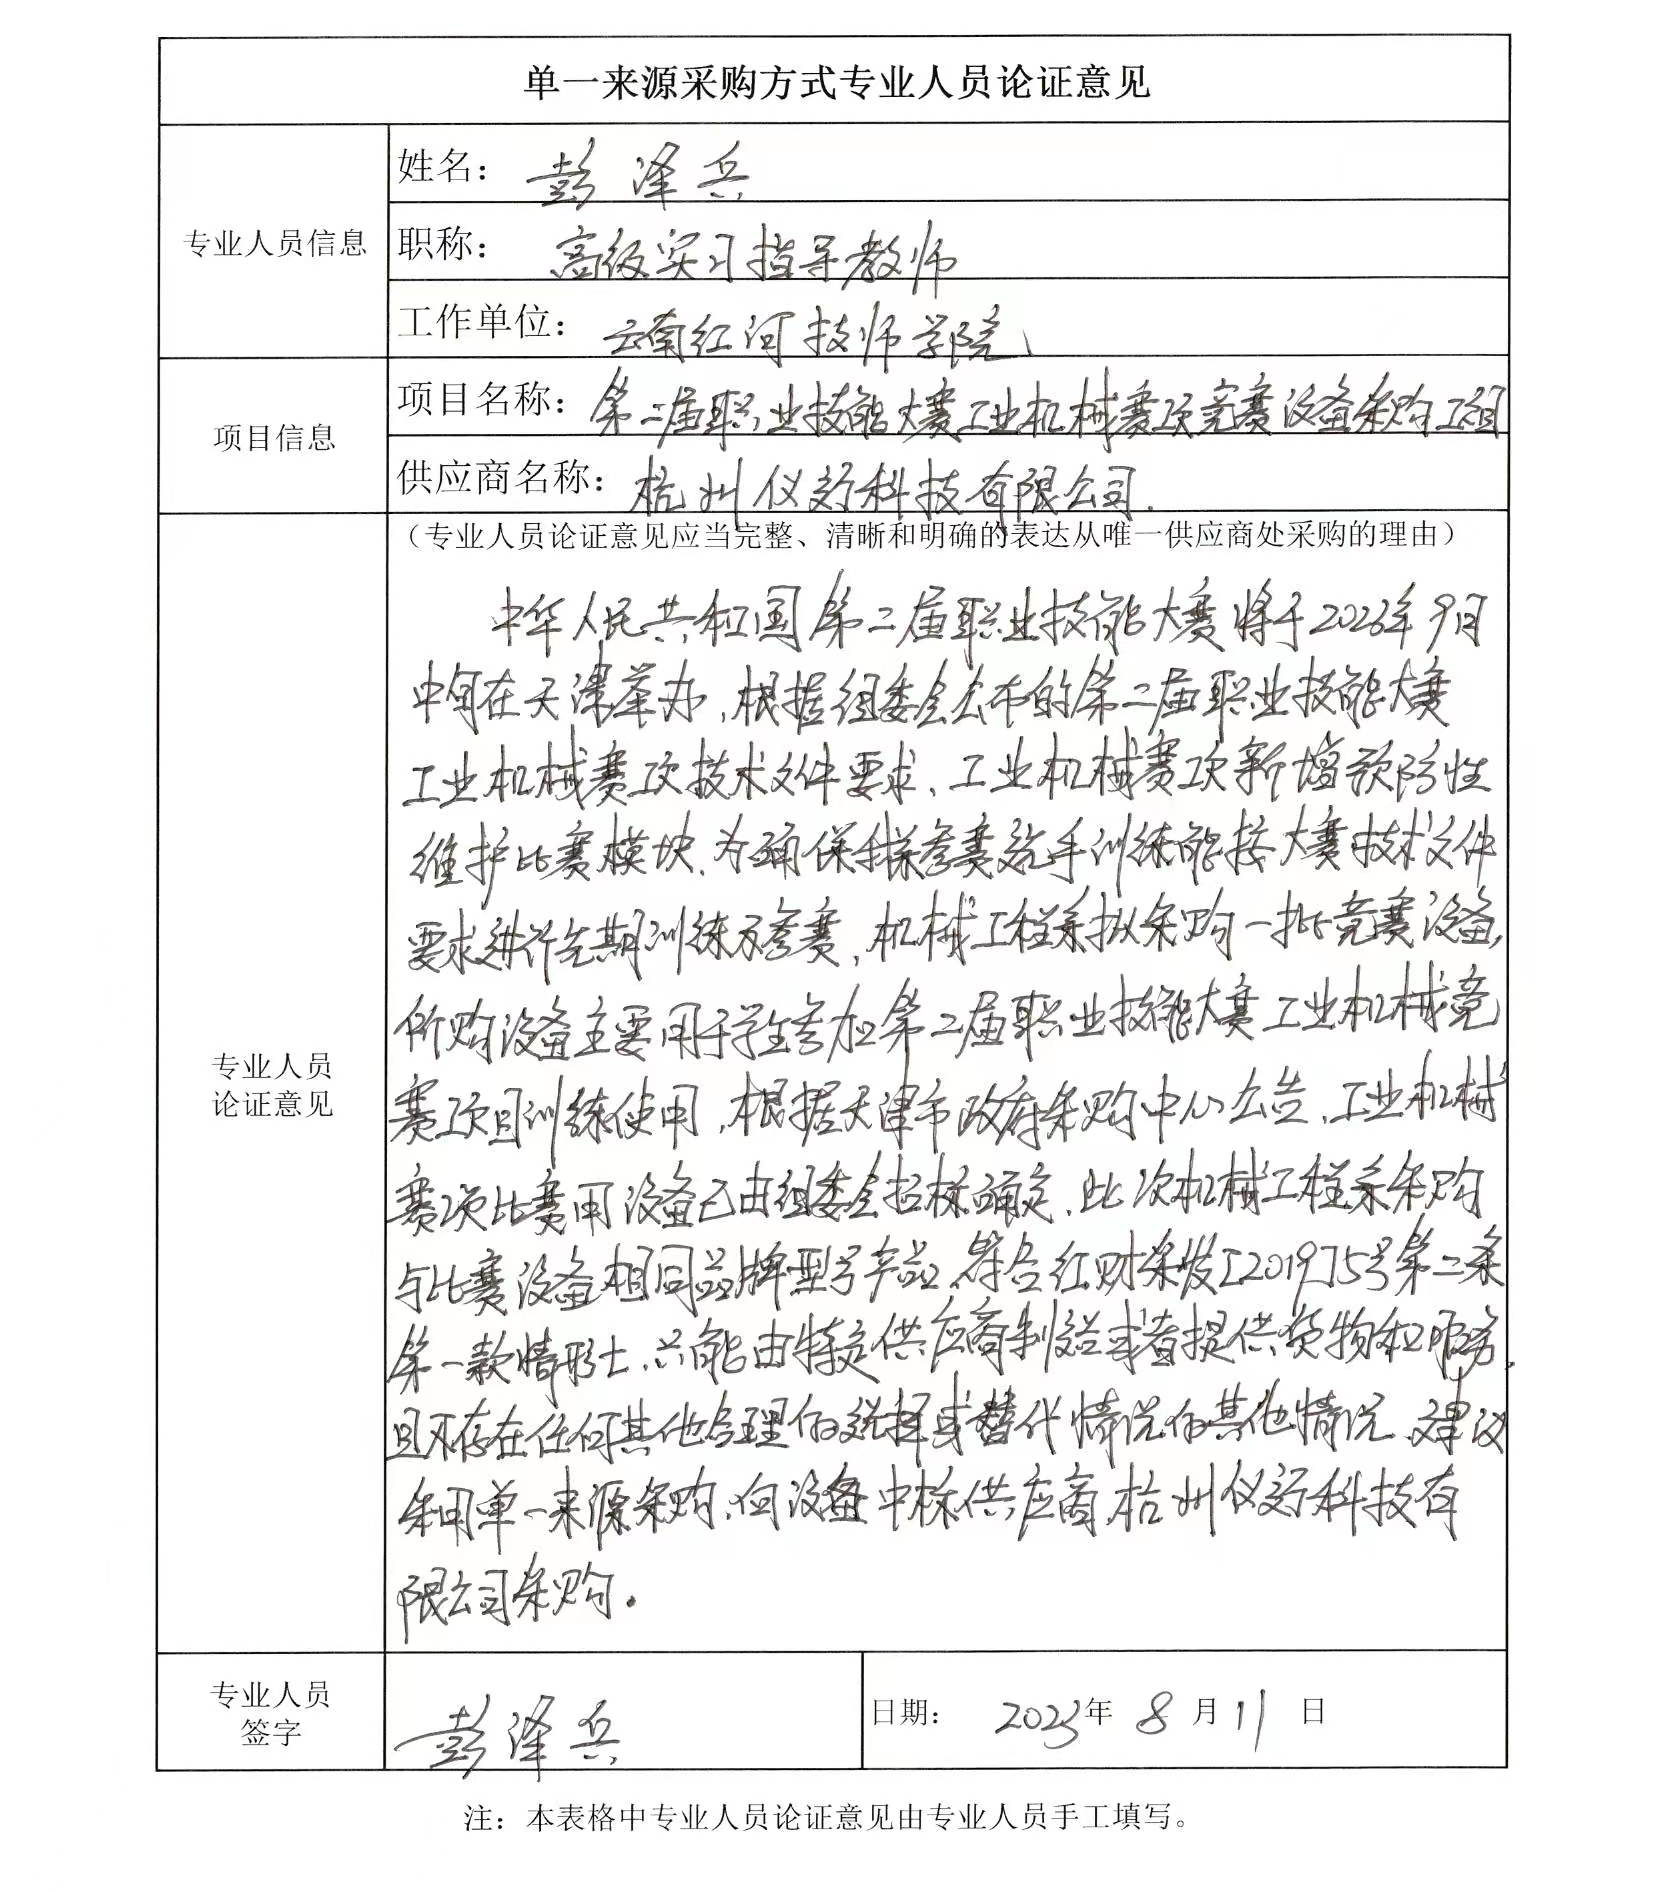 单一来源采购方式专业人员论证意见
专业人员信息
姓名：彭泽兵
职称：高级实习指导教师
工作单位：云南红河技师学院
项目信息
项目名称：第二届职业技能大赛工业机械赛项竞赛设备采购项目
供应商名称：杭州仪迈科技有限公司.
（专业人员论证意见应当完整、清晰和明确的表达从唯一供应商处采购的理由）
专业人员
论证意见
中华人民共和国第二届职业技能大赛将于2023年9月
中旬在天津举办，根据组委会公布的第二届职业技能大赛
工业机械赛项技术文件要求、工业机械赛项新增预防性
维护比赛模块、为确保我院参赛选手训练能按大赛技术文件
要求进行先期训练及参赛，机械工程系拟采购一批竞赛设备，
所购设备主要用于学生参加第二届职业技能大赛工业机械竞
赛项目训练使用，根据天津市政府采购中心公告、工业机械
赛项比赛用设备已由组委会招标确定、此次机械工程系采购
与比赛设备相同品牌型号产品、符合红财采发[2019]5号第二条
第一款情形七、只能由特定供应商制造或者提供货物和服务，
且不存在任何其他合理的选择或替代情况的其他情况、建议
采用单一来源采购、向设备中标供应商、杭州仪迈科技有
限公司采购。
专业人员
签字
彭泽兵
日期：2023年8月11日
注：本表格中专业人员论证意见由专业人员手工填写。